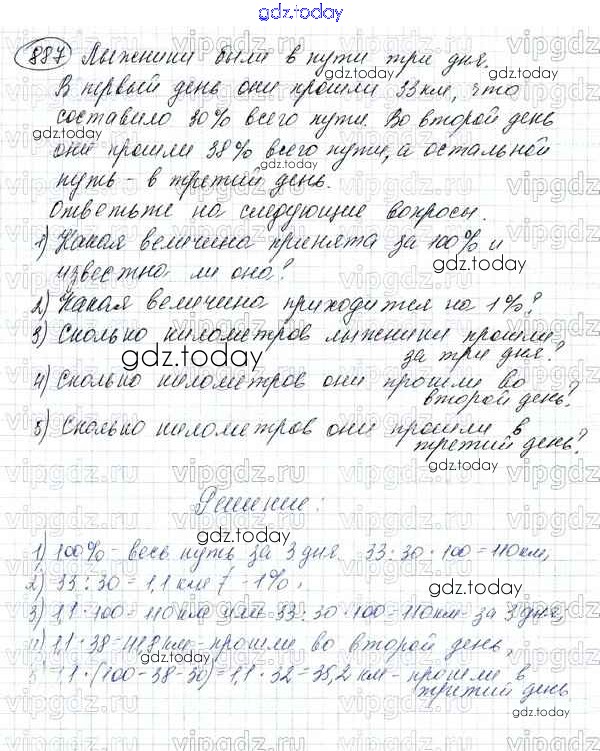 gdz.today
887) Лыжники были в пути три дня.
В первый день они прошли 33 км, это
составило 30% всего пути. Во второй день
они прошли 38% всего пути, а остальной
путь - в третий день.
Ответьте на следующие вопросы.
1) Какая величина принята за 100% и
известна ли она?
2) Какая величина приходится на 1%?
3) Сколько километров лыжники прошли
за три дня?
4) Сколько километров они прошли во
второй день?
5) Сколько километров они прошли в
третий день?
Решение:
1) 100% - весь путь за 3 дня 33:30·100=110км,
2) 33:30=1,1 км - 1%,
3) 1,1·100=110км или 33:30·100=110км- за 3 дня,
4) 1,1·38=41,8 км - прошли во второй день,
5) 1,1·(100-38-30)=1,1·32=35,2 км - прошли в
третий день